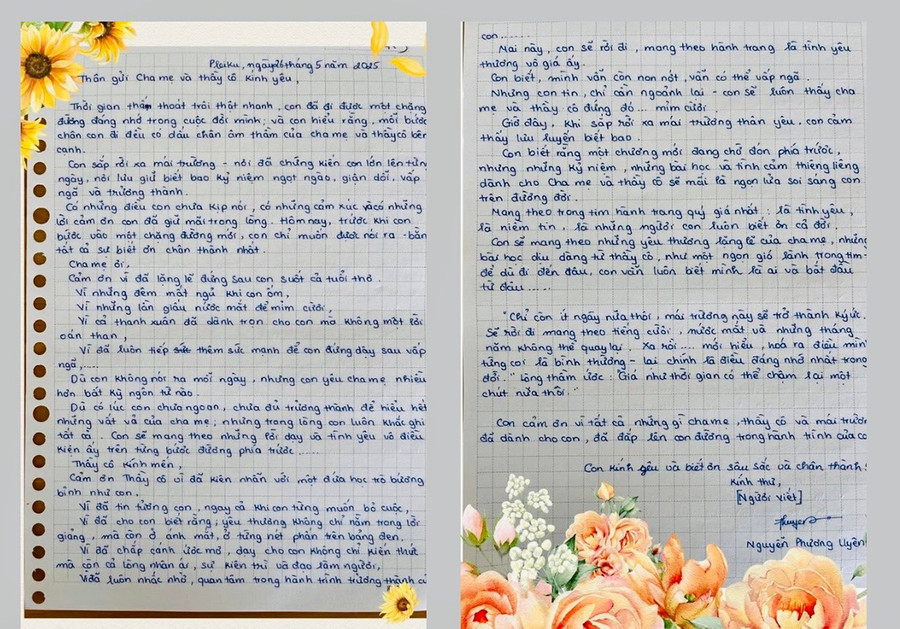 Pleiku, ngày 26 tháng 5 năm 2025
Thân gửi Cha mẹ và thầy cô kính yêu,
Thời gian thấm thoát trôi thật nhanh, con đã đi được một chặng
đường đáng nhớ trong cuộc đời mình; và con hiểu rằng, mỗi bước
chân con đi đều có dấu chân âm thầm của cha mẹ và thầy cô bên
cạnh.
Con sắp rời xa mái trường - nơi đã chứng kiến con lớn lên từng
ngày, nơi lưu giữ biết bao kỷ niệm ngọt ngào, giận dỗi, vấp
ngã và trưởng thành.
Có những điều con chưa kịp nói, có những cảm xúc và có những
lời cảm ơn con đã giữ mãi trong lòng. Hôm nay, trước khi con
bước vào một chặng đường mới, con chỉ muốn được nói ra - bằng
tất cả sự biết ơn chân thành nhất.
Cha mẹ ơi,
Cảm ơn vì đã lặng lẽ đứng sau con suốt cả tuổi thơ
Vì những đêm mất ngủ khi con ốm,
Vì những lần giấu nước mắt để mỉm cười,
Vì cả thanh xuân đã dành trọn cho con mà không một lời
oán than,
Vì đã luôn tiếp thêm sức mạnh để con đứng dậy sau vấp
ngã,....
Dù con không nói ra mỗi ngày, nhưng con yêu cha mẹ nhiều
hơn bất kỳ ngôn từ nào.
Dù có lúc con chưa ngoan, chưa đủ trưởng thành để hiểu hết
những vất vả của cha mẹ; nhưng trong lòng con luôn khắc ghi
tất cả. Con sẽ mang theo những lời dạy và tình yêu vô điều
kiện ấy trên từng bước đường phía trước.....
Thầy cô kính mến,
Cảm ơn Thầy cô vì đã kiên nhẫn với một đứa học trò bướng
bỉnh như con.
Vì đã tin tưởng con, ngay cả khi con từng muốn bỏ cuộc,
Vì đã cho con biết rằng; yêu thương không chỉ nằm trong lời
giảng, mà còn ở ánh mắt, ở từng nét phấn trên bảng đen.
Vì đã chấp cánh ước mơ, dạy cho con không chỉ kiến thức
mà còn cả lòng nhân ái, sự kiên trì và đạo làm người,
Vì đã luôn nhắc nhở, quan tâm trong hành trình trưởng thành
con......
Mai này, con sẽ rời đi, mang theo hành trang là tình yêu
thương vô giá ấy.
Con biết, mình vẫn còn non nớt, vẫn có thể vấp ngã.
Nhưng con tin, chỉ cần ngoảnh lại - con sẽ luôn thấy cha
mẹ và thầy cô đứng đó... mỉm cười.
Giờ đây, khi sắp rời xa mái trường thân yêu, con cảm
thấy lưu luyến biết bao.
Con biết rằng một chương mới đang chờ đón phía trước,
nhưng những kỷ niệm, những bài học và tình cảm thiêng liêng
dành cho Cha mẹ và thầy cô sẽ mãi là ngọn lửa soi sáng con
trên đường đời.
Mang theo trong tim hành trang quý giá nhất: là tình yêu,
là niềm tin, là những người con luôn biết ơn cả đời.
Con sẽ mang theo những yêu thương lặng lẽ của cha mẹ, những
bài học dịu dàng từ thầy cô, như một ngọn gió lành trong tim-
để dù đi đến đâu, con vẫn luôn biết mình là ai và bắt đầu
từ đâu.....
"Chỉ còn ít ngày nữa thôi, mái trường này sẽ trở thành ký ức.
Sẽ rời đi mang theo tiếng cười, nước mắt và những tháng
năm không thể quay lại. Xa rồi.... mới hiểu, hoá ra điều mình
từng coi là bình thường - lại chính là điều đáng nhớ nhất trong
đời." lòng thầm ước: "Giá như thời gian có thể chậm lại một
chút nữa thôi."
Con cảm ơn vì tất cả, những gì cha mẹ, thầy cô và mái trường
đã dành cho con, đã đắp lên con đường trong hành trình của
Con kính yêu và biết ơn sâu sắc và chân thành.
Kính thư,
[Người viết]
Nguyễn Phương Uyên